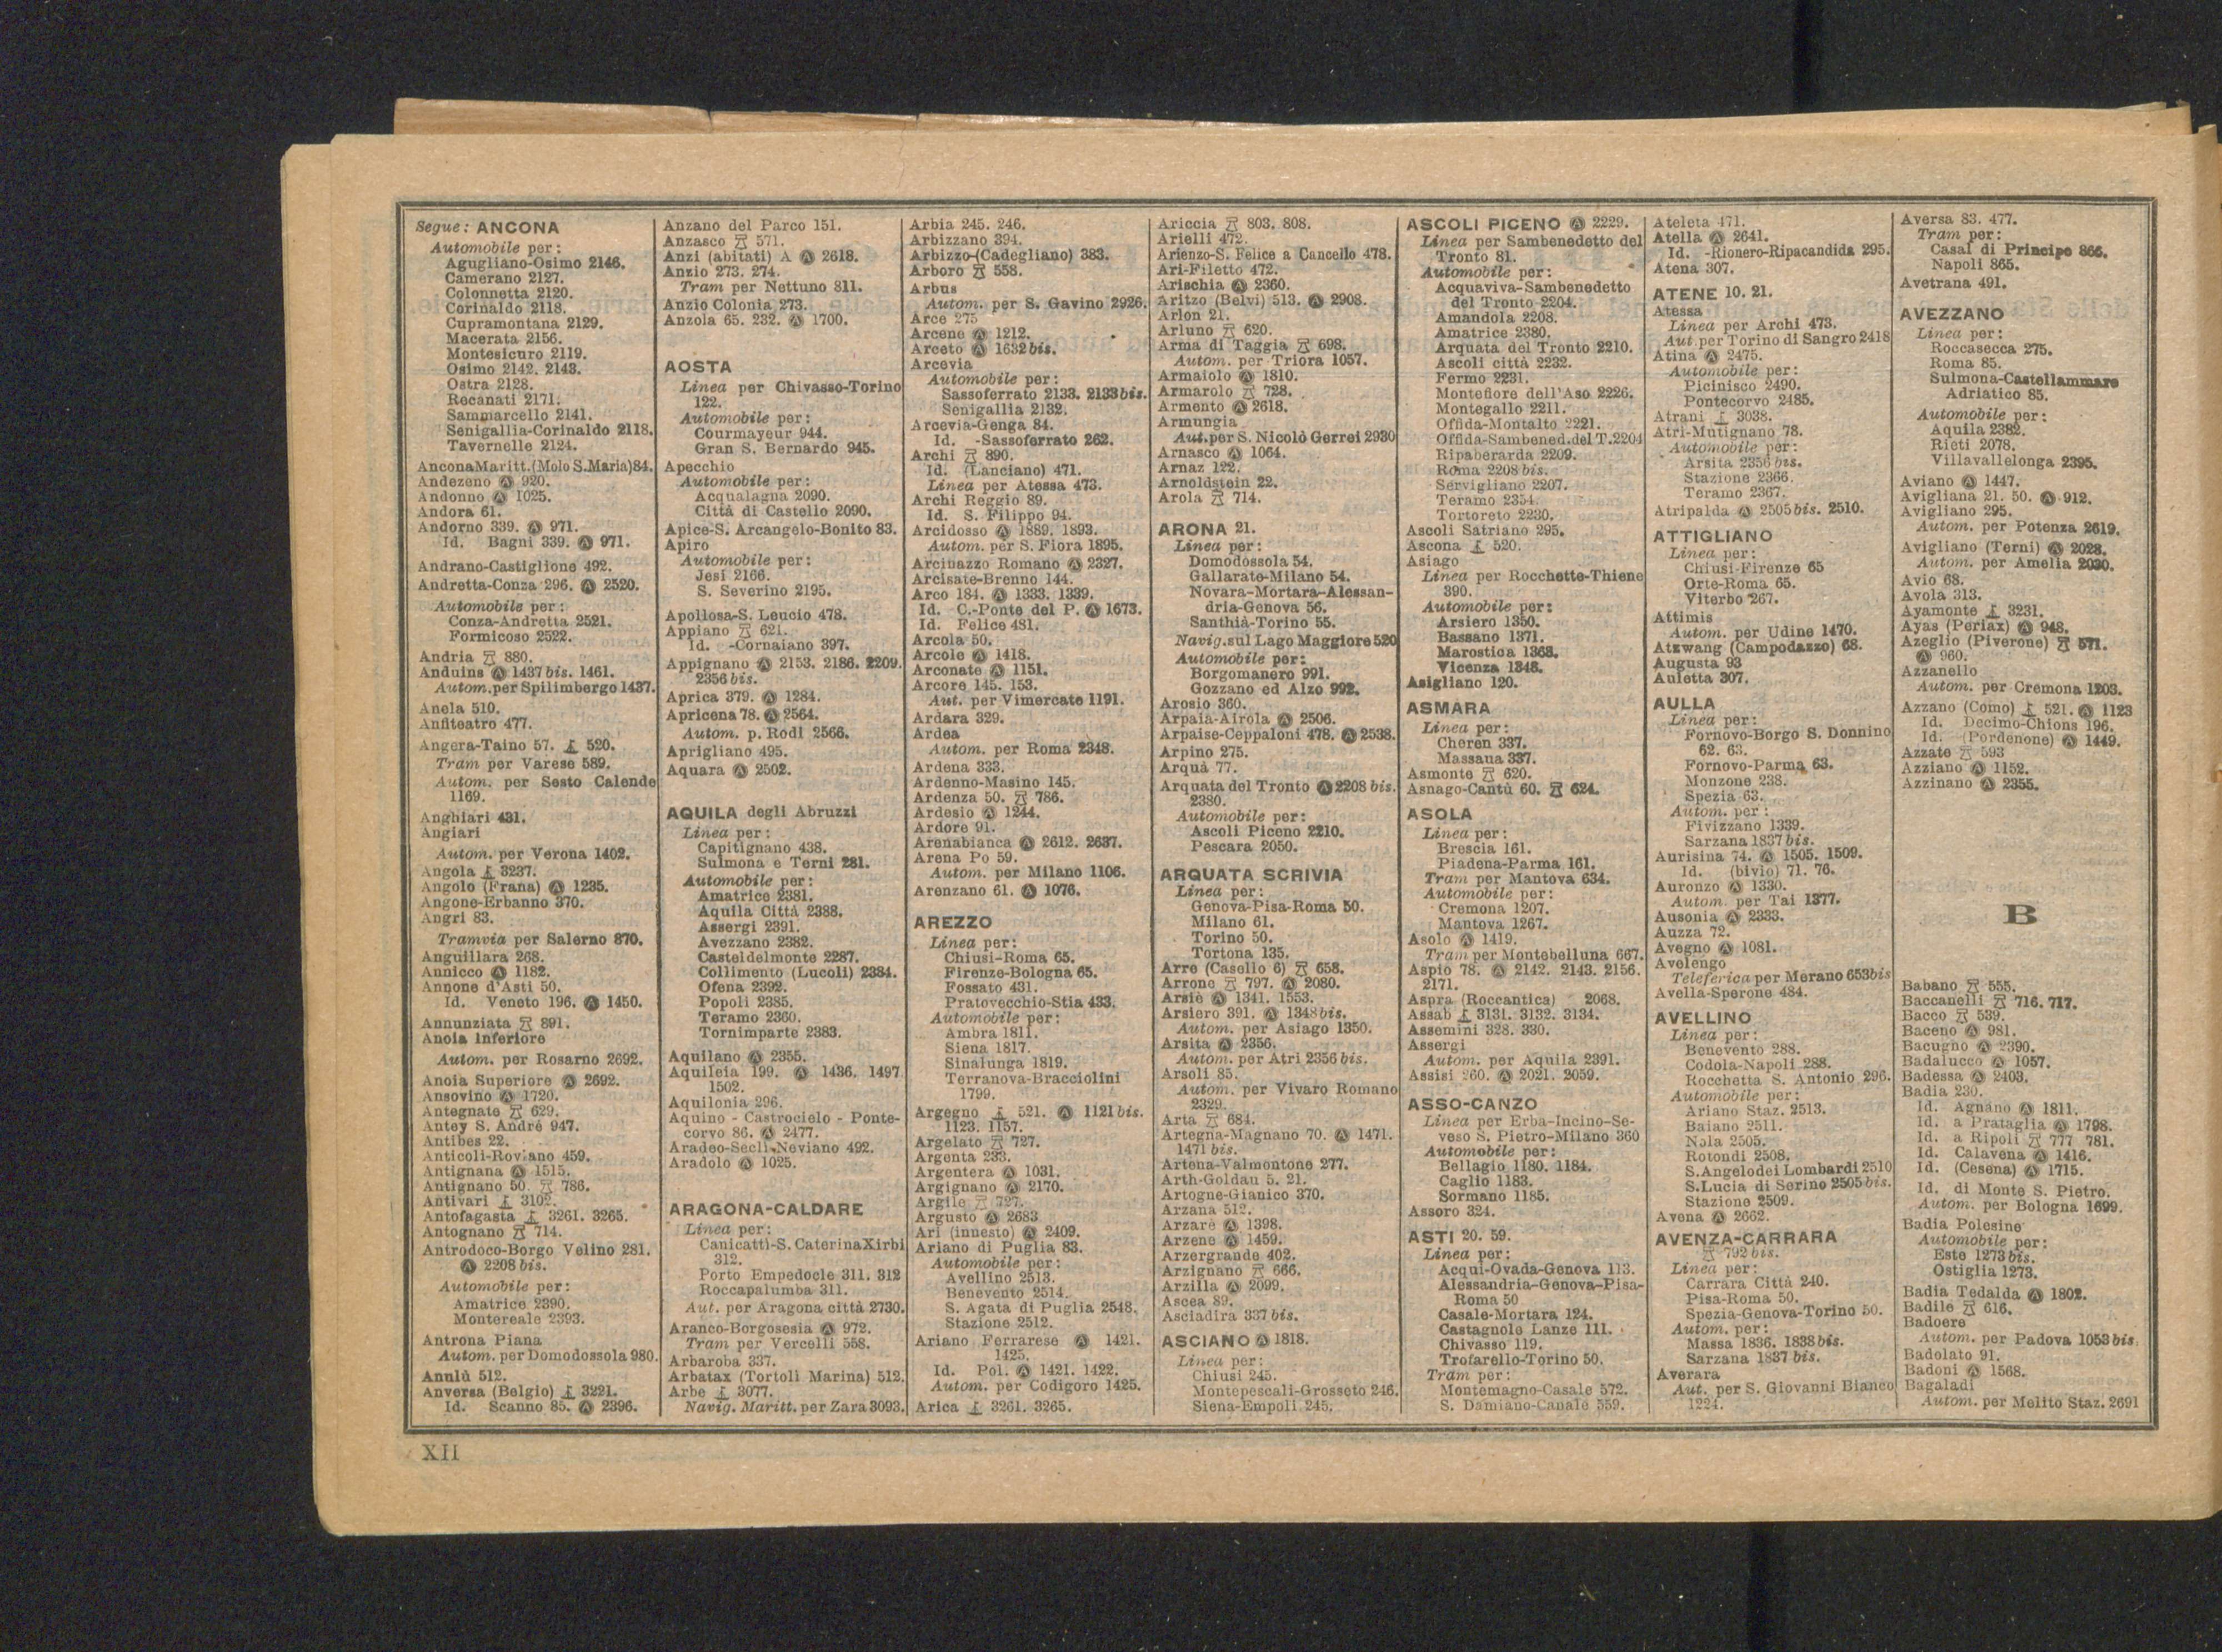 Segue: ANCONA
Automobile per:
Agugliano-Osimo 2146.
Camerano 2127.
Colonnetta 2120.
Corinaldo 2118.
Cupramontana 2129.
Macerata 2156.
Montesicuro 2119.
Osimo 2142. 2143.
Ostra 2128.
Recanati 2171.
Sammarcello 2141.
Senigallia-Corinaldo 2118.
Tavernelle 2124.
Ancona Maritt. (Molo S. Maria) 84.
Andezeno Ⓐ 920.
Andonno Ⓐ 1025.
Andora 61.
Andorno 339. Ⓐ 971.
Id. Bagni 339. Ⓐ 971.
Andrano-Castiglione 492.
Andretta-Conza 296. Ⓐ 2520.
Automobile per:
Conza-Andretta 2521.
Formicoso 2522.
Andria 880.
Anduins Ⓐ 1437 bis. 1461.
Autom. per Spilimbergo 1437.
Anela 510.
Anfiteatro 477.
Angera-Taino 57. 520.
Tram per Varese 589.
Autom. per Sesto Calende
1169.
Anghiari 431.
Angiari
Autom. per Verona 1402.
Angola 3237.
Angolo (Frana) Ⓐ 1235.
Angone-Erbanno 370.
Angri 83.
Tramvia per Salerno 870.
Anguillara 268.
Annicco Ⓐ 1182.
Annone d'Asti 50.
Id. Veneto 196. Ⓐ 1450.
Annunziata 891.
Anoia Inferiore
Autom. per Rosarno 2692.
Anoia Superiore Ⓐ 2692.
Ansovino Ⓐ 1720.
Antegnate 629.
Antey S. André 947.
Antibes 22.
Anticoli-Roviano 459.
Antignana Ⓐ 1515.
Antignano 50. 786.
Antivari 3102.
Antofagasta 3261. 3265.
Antognano 714.
Antrodoco-Borgo Velino 281.
Ⓐ 2208 bis.
Automobile per:
Amatrice 2390.
Montereale 2393.
Antrona Piana
Autom. per Domodossola 980.
Anulù 512.
Anversa (Belgio) 3221.
Id. Scanno 85. Ⓐ 2396.
Anzano del Parco 151.
Anzasco 571.
Anzi (abitati) A Ⓐ 2618.
Anzio 273. 274.
Tram per Nettuno 811.
Anzio Colonia 273.
Anzola 65. 232. Ⓐ 1700.
AOSTA
Linea per Chivasso-Torino
122.
Automobile per:
Courmayeur 944.
Gran S. Bernardo 945.
Apecchio
Automobile per:
Acqualagna 2090.
Città di Castello 2090.
Apice-S. Arcangelo-Bonito 83.
Apiro
Automobile per:
Jesi 2166.
S. Severino 2195.
Apollosa-S. Leucio 478.
Appiano 621.
Id. -Cornaiano 397.
Appignano Ⓐ 2153. 2186. 2209.
2356 bis.
Aprica 379. Ⓐ 1284.
Apricena 78. Ⓐ 2564.
Autom. p. Rodi 2566.
Aprigliano 495.
Aquara Ⓐ 2502.
AQUILA degli Abruzzi
Linea per:
Capitignano 438.
Sulmona e Terni 281.
Automobile per:
Amatrice 2381.
Aquila Città 2388.
Assergi 2391.
Avezzano 2382.
Casteldelmonte 2287.
Collimento (Lucoli) 2384.
Ofena 2392.
Popoli 2385.
Teramo 2360.
Tornimparte 2383.
Aquilano Ⓐ 2355.
Aquileia 199. Ⓐ 1436. 1497
1502.
Aquilonia 296.
Aquino - Castrocielo - Ponte-
corvo 86. Ⓐ 2477.
Aradeo-Seclì-Neviano 492.
Aradolo Ⓐ 1025.
ARAGONA-CALDARE
Linea per:
Canicattì-S. Caterina Xirbi
312.
Porto Empedocle 311. 312
Roccapalumba 311.
Aut. per Aragona città 2730.
Aranco-Borgosesia Ⓐ 972.
Tram per Vercelli 558.
Arbaroba 337.
Arbatax (Tortolì Marina) 512.
Arbe 3077.
Navig. Maritt. per Zara 3093.
Arbia 245. 246.
Arbizzano 394.
Arbizzo-(Cadegliano) 383.
Arboro 558.
Arbus
Autom. per S. Gavino 2926.
Arce 275
Arcene Ⓐ 1212.
Arceto Ⓐ 1632 bis.
Arcevia
Automobile per:
Sassoferrato 2133. 2133 bis.
Senigallia 2132.
Arcevia-Genga 84.
Id. -Sassoferrato 262.
Archi 890.
Id. (Lanciano) 471.
Linea per Atessa 473.
Archi Reggio 89.
Id. S. Filippo 94.
Arcidosso Ⓐ 1889. 1893.
Autom. per S. Fiora 1895.
Arcinazzo Romano Ⓐ 2327.
Arcisate-Brenno 144.
Arco 184. Ⓐ 1333. 1339.
Id. C.-Ponte del P. Ⓐ 1673.
Id. Felice 481.
Arcola 50.
Arcole Ⓐ 1418.
Arconate Ⓐ 1151.
Arcore 145. 153.
Aut. per Vimercate 1191.
Ardara 329.
Ardea
Autom. per Roma 2348.
Ardena 333.
Ardenno-Masino 145.
Ardenza 50. 786.
Ardesio Ⓐ 1244.
Ardore 91.
Arenabianca Ⓐ 2612. 2637.
Arena Po 59.
Autom. per Milano 1106.
Arenzano 61. Ⓐ 1076.
AREZZO
Linea per:
Chiusi-Roma 65.
Firenze-Bologna 65.
Fossato 431.
Pratovecchio-Stia 433.
Automobile per:
Ambra 1811.
Siena 1817.
Sinalunga 1819.
Terranova-Bracciolini
1799.
Argegno 521. Ⓐ 1121 bis.
1123. 1157.
Argelato 727.
Argenta 233.
Argentera Ⓐ 1031.
Argignano Ⓐ 2170.
Argile 727.
Argusto Ⓐ 2683
Ari (innesto) Ⓐ 2409.
Ariano di Puglia 83.
Automobile per:
Avellino 2513.
Benevento 2514.
S. Agata di Puglia 2548.
Stazione 2512.
Ariano Ferrarese Ⓐ 1421.
1425.
Id. Pol. Ⓐ 1421. 1422.
Autom. per Codigoro 1425.
Arica 3261. 3265.
Ariccia 803. 808.
Arielli 472.
Arienzo-S. Felice a Cancello 478.
Ari-Filetto 472.
Arischia Ⓐ 2360.
Aritzo (Belvì) 513. Ⓐ 2908.
Arlon 21.
Arluno 620.
Arma di Taggia 698.
Autom. per Triora 1057.
Armaiolo Ⓐ 1810.
Armarolo 728.
Armento Ⓐ 2618.
Armungia
Aut. per S. Nicolò Gerrei 2930
Arnasco Ⓐ 1064.
Arnaz 122.
Arnoldstein 22.
Arola 714.
ARONA 21.
Linea per:
Domodossola 54.
Gallarate-Milano 54.
Novara-Mortara-Alessan-
dria-Genova 56.
Santhià-Torino 55.
Navig. sul Lago Maggiore 520
Automobile per:
Borgomanero 991.
Gozzano ed Alzo 992.
Arosio 360.
Arpaia-Airola Ⓐ 2506.
Arpaise-Ceppaloni 478. Ⓐ 2538.
Arpino 275.
Arquà 77.
Arquata del Tronto Ⓐ 2208 bis.
2380.
Automobile per:
Ascoli Piceno 2210.
Pescara 2050.
ARQUATA SCRIVIA
Linea per:
Genova-Pisa-Roma 50.
Milano 61.
Torino 50.
Tortona 135.
Arre (Casello 6) 658.
Arrone 797. Ⓐ 2080.
Arsiè Ⓐ 1341. 1553.
Arsiero 391. Ⓐ 1348 bis.
Autom. per Asiago 1350.
Arsita Ⓐ 2356.
Autom. per Atri 2356 bis.
Arsoli 85.
Autom. per Vivaro Romano
2329.
Arta 684.
Artegna-Magnano 70. Ⓐ 1471.
1471 bis.
Artena-Valmontone 277.
Arth-Goldau 5. 21.
Artogne-Gianico 370.
Arzana 512.
Arzarè Ⓐ 1398.
Arzene Ⓐ 1459.
Arzergrande 402.
Arzignano 666.
Arzilla Ⓐ 2099.
Ascea 89.
Asciadira 337 bis.
ASCIANO Ⓐ 1818.
Linea per:
Chiusi 245.
Montepescali-Grosseto 246.
Siena-Empoli 245.
ASCOLI PICENO Ⓐ 2229.
Linea per Sambenedetto del
Tronto 81.
Automobile per:
Acquaviva-Sambenedetto
del Tronto 2204.
Amandola 2208.
Amatrice 2380.
Arquata del Tronto 2210.
Ascoli città 2232.
Fermo 2231.
Montefiore dell'Aso 2226.
Montegallo 2211.
Offida-Montalto 2221.
Offida-Sambened. del T. 2204
Ripaberarda 2209.
Roma 2208 bis.
Servigliano 2207.
Teramo 2354.
Tortoreto 2230.
Ascoli Satriano 295.
Ascona 520.
Asiago
Linea per Rocchette-Thiene
390.
Automobile per:
Arsiero 1350.
Bassano 1371.
Marostica 1368.
Vicenza 1348.
Asigliano 120.
ASMARA
Linea per:
Cheren 337.
Massaua 337.
Asmonte 620.
Asnago-Cantù 60. 624.
ASOLA
Linea per:
Brescia 161.
Piadena-Parma 161.
Tram per Mantova 634.
Automobile per:
Cremona 1207.
Mantova 1267.
Asolo Ⓐ 1419.
Tram per Montebelluna 667.
Aspio 78. Ⓐ 2142. 2143. 2156.
2171.
Aspra (Roccantica) 2068.
Assab 3131. 3132. 3134.
Assemini 328. 330.
Assergi
Autom. per Aquila 2391.
Assisi 260. Ⓐ 2021. 2059.
ASSO-CANZO
Linea per Erba-Incino-Se-
veso S. Pietro-Milano 360
Automobile per:
Bellagio 1180. 1184.
Caglio 1183.
Sormano 1185.
Assoro 324.
ASTI 20. 59.
Linea per:
Acqui-Ovada-Genova 113.
Alessandria-Genova-Pisa-
Roma 50
Casale-Mortara 124.
Castagnole Lanze 111.
Chivasso 119.
Trofarello-Torino 50.
Tram per:
Montemagno-Casale 572.
S. Damiano-Canale 559.
Ateleta 471.
Atella Ⓐ 2641.
Id. -Rionero-Ripacandida 295.
Atena 307.
ATENE 10. 21.
Atessa
Linea per Archi 473.
Aut. per Torino di Sangro 2418
Atina Ⓐ 2475.
Automobile per:
Picinisco 2490.
Pontecorvo 2485.
Atrani 3038.
Atri-Mutignano 78.
Automobile per:
Arsita 2356 bis.
Stazione 2366.
Teramo 2367.
Atripalda Ⓐ 2505 bis. 2510.
ATTIGLIANO
Linea per:
Chiusi-Firenze 65
Orte-Roma 65.
Viterbo 267.
Attimis
Autom. per Udine 1470.
Atzwang (Campodazzo) 68.
Augusta 93
Auletta 307.
AULLA
Linea per:
Fornovo-Borgo S. Donnino
62. 63.
Fornovo-Parma 63.
Monzone 238.
Spezia 63.
Autom. per:
Fivizzano 1339.
Sarzana 1837 bis.
Aurisina 74. Ⓐ 1505. 1509.
Id. (bivio) 71. 76.
Auronzo Ⓐ 1330.
Autom. per Tai 1377.
Ausonia Ⓐ 2333.
Auzza 72.
Avegno Ⓐ 1081.
Avelengo
Teleferica per Merano 653 bis
Avella-Sperone 484.
AVELLINO
Linea per:
Benevento 288.
Codola-Napoli 288.
Rocchetta S. Antonio 296.
Automobile per:
Ariano Staz. 2513.
Baiano 2511.
Nola 2505.
Rotondi 2508.
S. Angelo dei Lombardi 2510
S. Lucia di Serino 2505 bis.
Stazione 2509.
Avena Ⓐ 2662.
AVENZA-CARRARA
792 bis.
Linea per:
Carrara Città 240.
Pisa-Roma 50.
Spezia-Genova-Torino 50.
Autom. per:
Massa 1836. 1838 bis.
Sarzana 1837 bis.
Averara
Aut. per S. Giovanni Bianco
1224.
Aversa 83. 477.
Tram per:
Casal di Principe 866.
Napoli 865.
Avetrana 491.
AVEZZANO
Linea per:
Roccasecca 275.
Roma 85.
Sulmona-Castellammare
Adriatico 85.
Automobile per:
Aquila 2382.
Rieti 2078.
Villavallelonga 2395.
Aviano Ⓐ 1447.
Avigliana 21. 50. Ⓐ 912.
Avigliano 295.
Autom. per Potenza 2619.
Avigliano (Terni) Ⓐ 2028.
Autom. per Amelia 2030.
Avio 68.
Avola 313.
Ayamonte 3231.
Ayas (Periax) Ⓐ 948.
Azeglio (Piverone) 571.
Ⓐ 960.
Azzanello
Autom. per Cremona 1203.
Azzano (Como) 521. Ⓐ 1123
Id. Decimo-Chions 196.
Id. (Pordenone) Ⓐ 1449.
Azzate 593
Azziano Ⓐ 1152.
Azzinano Ⓐ 2355.
B
Babano 555.
Baccanelli 716. 717.
Bacco 539.
Baceno Ⓐ 981.
Bacugno Ⓐ 2390.
Badalucco Ⓐ 1057.
Badessa Ⓐ 2403.
Badia 230.
Id. Agnano Ⓐ 1811.
Id. a Prataglia Ⓐ 1798.
Id. a Ripoli 777 781.
Id. Calavena Ⓐ 1416.
Id. (Cesena) Ⓐ 1715.
Id. di Monte S. Pietro.
Autom. per Bologna 1699.
Badia Polesine
Automobile per:
Este 1273 bis.
Ostiglia 1273.
Badia Tedalda Ⓐ 1802.
Badile 616.
Badoere
Autom. per Padova 1053 bis
Badolato 91.
Badoni Ⓐ 1568.
Bagaladi
Autom. per Melito Staz. 2691
XII